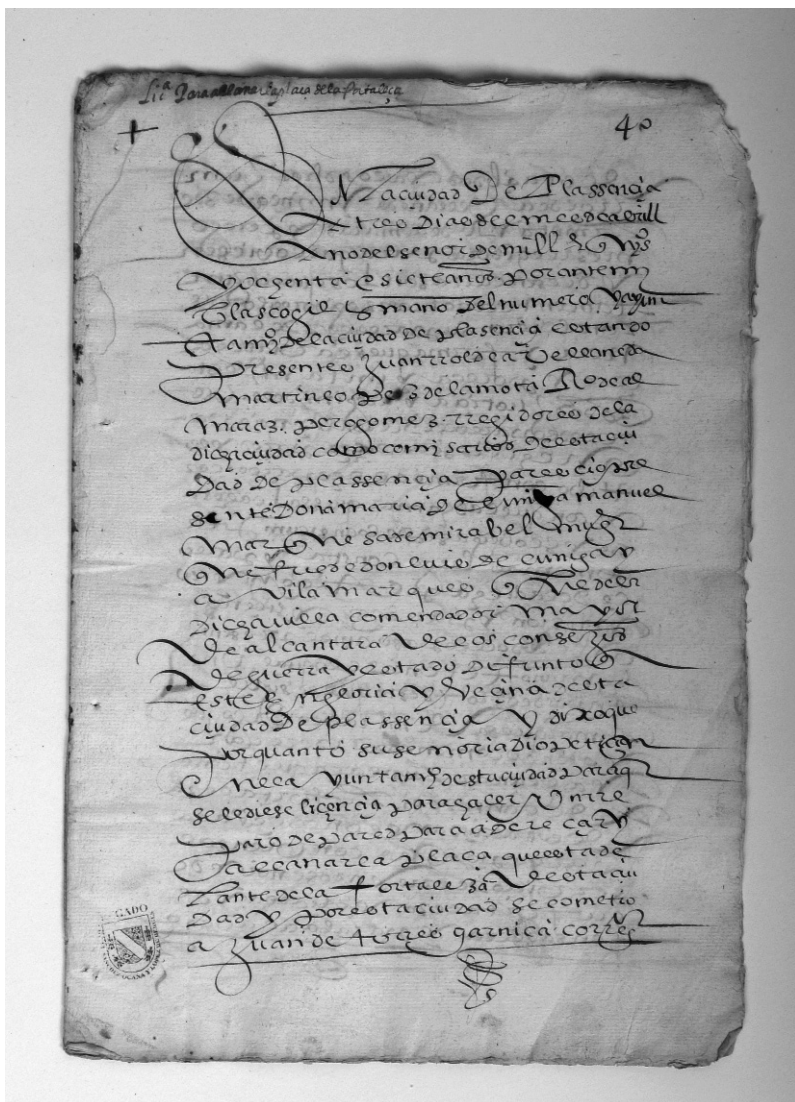 Liça Para allanar la plaça de la fortaleça
40
En la ciudad De Plassençia
a tres dias del mes de abrill
Año del señor de mill E quis
y ochenta e siete años. Por ante mi
blasco gil esno del numero y ayun
tamio de la ciudad de plasençia estando
presentes Juan de abellaneda
martin lopez de la mota Ro de al
maraz. pero gomez. rregidores de la
dicha ciudad como comisarios de esta ciu
dad de plassençia pareçio pre
sente Doña maria manuel
marquesa de mirabel muger
que fue de don luis de çuniga y
a vila marques que fue de la
dicha villa comendador mayor
de alcantara de los consejos
de guerra y estado difunto que
este en gloria y veçina de esta
ciudad De plassençia y dixo que
por quanto su señoria dio petiçion
en el ayuntamio de esta ciudad para q
se le diese liçençia para hacer un rre
paro de pared para adereçar y
allanar la plaça que esta de
lante de la fortaleza de esta ciu
dad y por esta ciudad se cometio
a Juan de torres garnica corregor
GADO